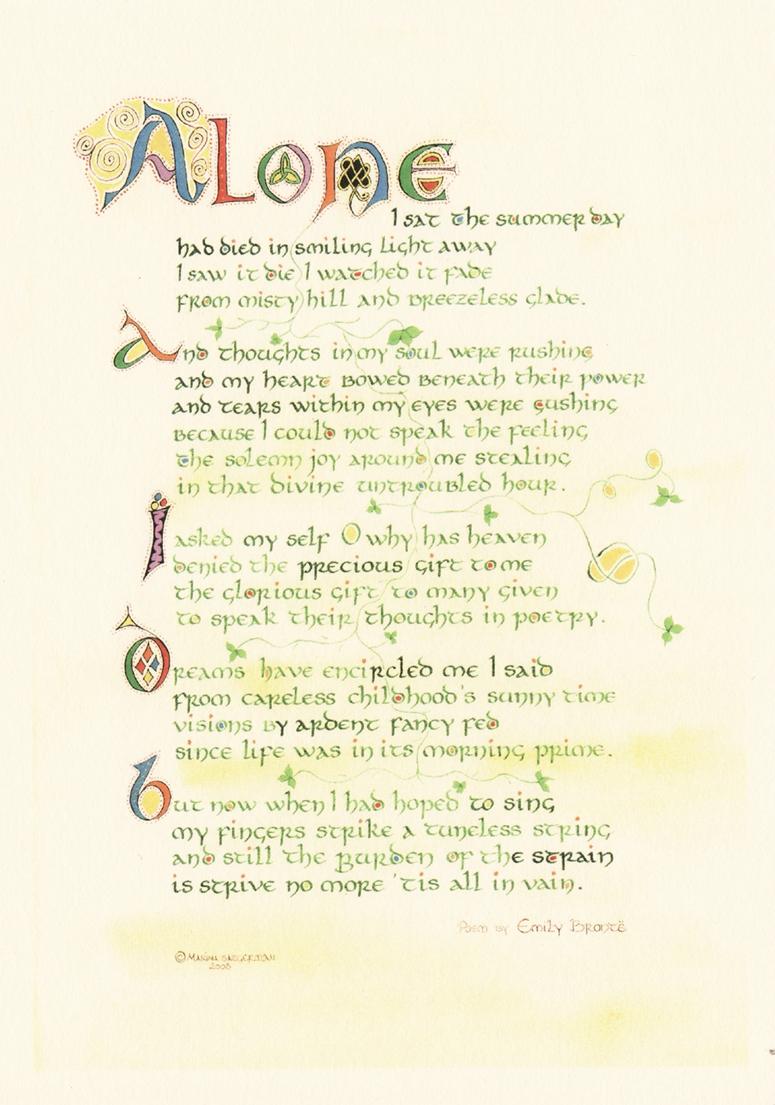 Alone
I sat the summer day
had died in smiling light away
I saw it die I watched it fade
from misty hill and breezeless glade.
And thoughts in my soul were rushing
and my heart bowed beneath their power
and tears within my eyes were gushing
because I could not speak the feeling
the solemn joy around me stealing
in that divine untroubled hour.
I asked my self O why has heaven
denied the precious gift to me
the glorious gift to many given
to speak their thoughts in poetry.
Dreams have encircled me I said
from careless childhood's sunny time
visions by ardent fancy fed
since life was in its morning prime.
But now when I had hoped to sing
my fingers strike a tuneless string
and still the burden of the strain
is strive no more 'tis all in vain.
Poem by Emily Brontë
©
2008